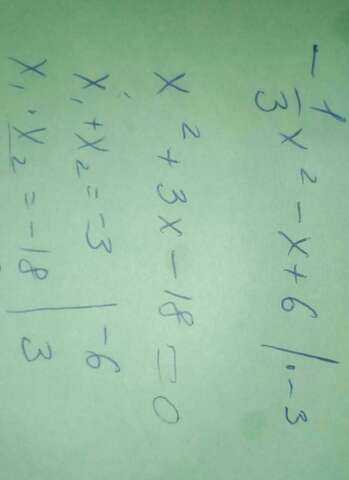 -1/3 x² - x + 6 | · -3
x² + 3x - 18 = 0
x₁ + x₂ = -3 | -6
x₁ · x₂ = -18 | 3